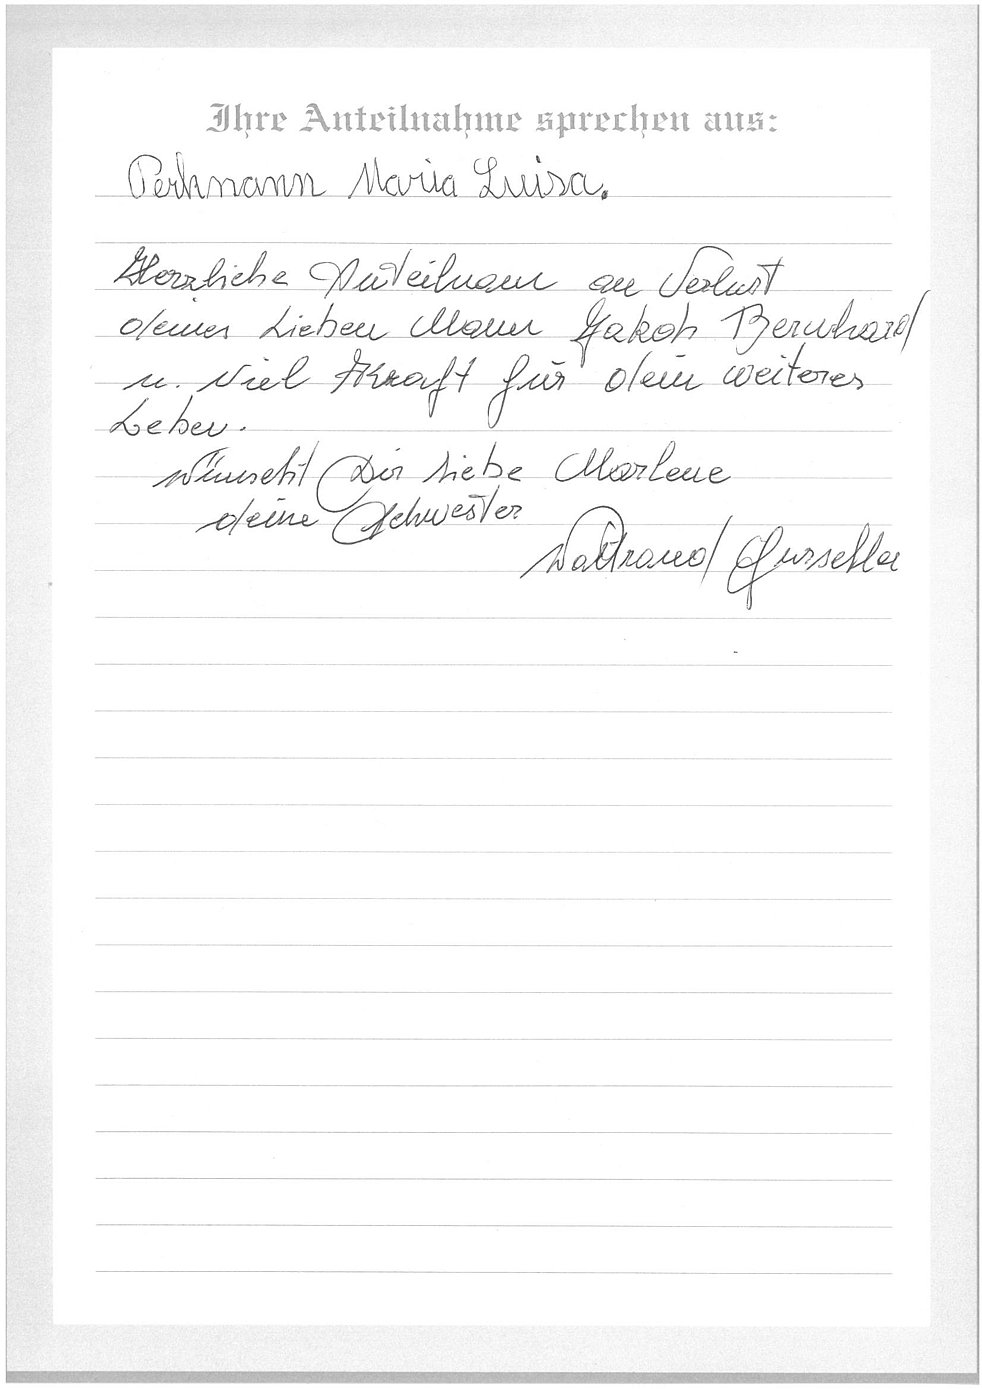 Ihre Anteilnahme sprechen aus:
Perkmann Maria Luisa.
Herzliche Anteilnam an Verlust
deines Lieben Mann Jakob Bernhard
u. Viel Kraft für dein weiteres
Leben.
wünscht Dir Liebe Marlene
deine Schwester
Waltraud